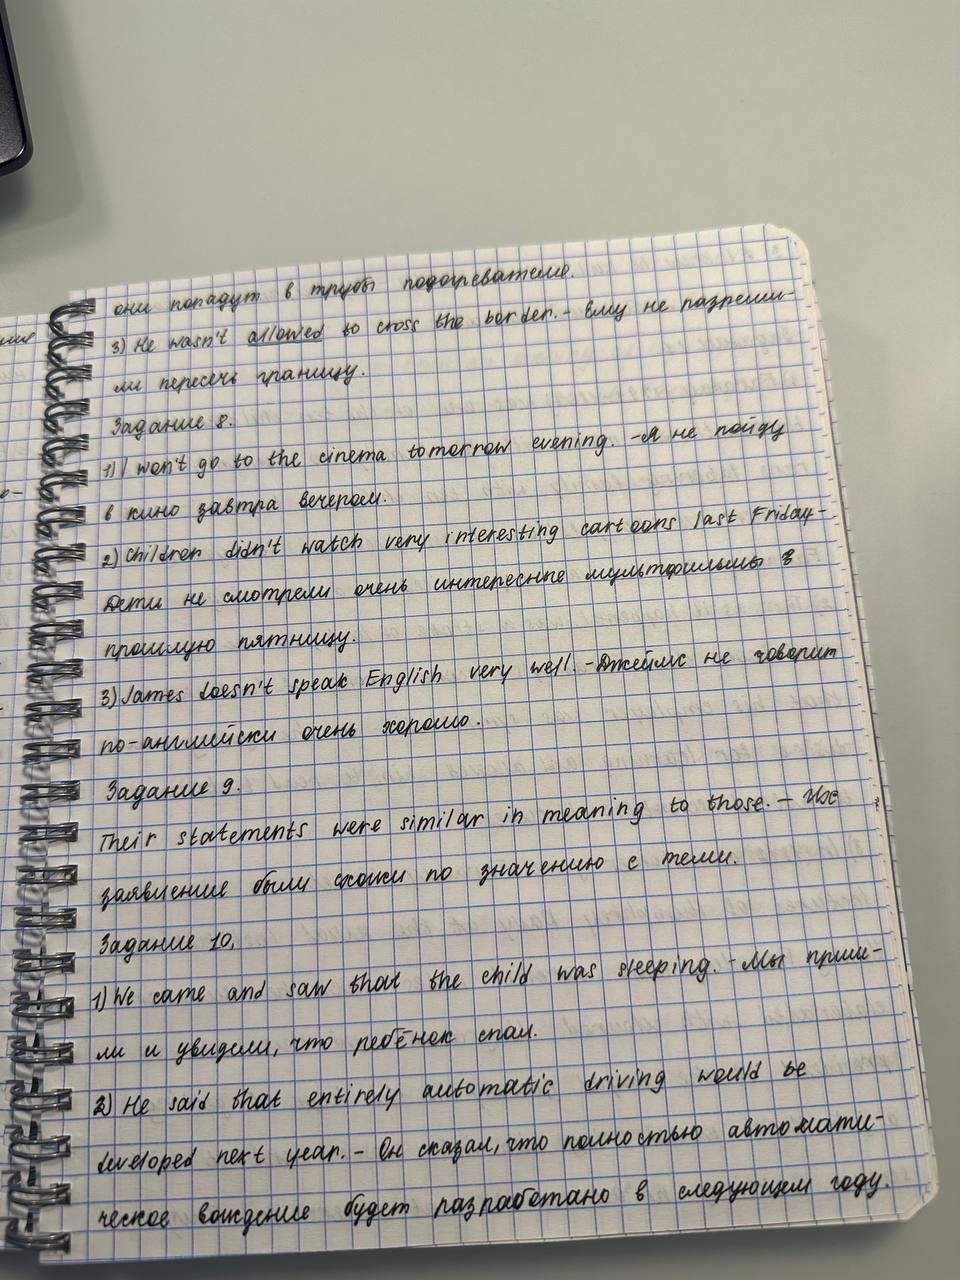 они попадут в трубы подогревателя.
3) He wasn't allowed to cross the border. - Ему не разреши-
ли пересечь границу.
Задание 8.
1) I won't go to the cinema tomorrow evening. - Я не пойду
в кино завтра вечером.
2) Children didn't watch very interesting cartoons last Friday-
Дети не смотрели очень интересные мультфильмы в
прошлую пятницу.
3) James doesn't speak English very well. - Джеймс не говорит
по-английски очень хорошо.
Задание 9.
Their statements were similar in meaning to those. - Их
заявление были схожи по значению с теми.
Задание 10.
1) We came and saw that the child was sleeping. - Мы приш-
ли и увидели, что ребёнок спал.
2) He said that entirely automatic driving would be
developed next year. - Он сказал, что полностью автомати-
ческое вождение будет разработано в следующем году.